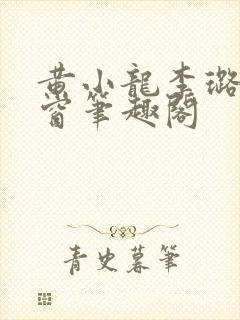 黄小龍李璐
窗筆趣閣
青史暮筆